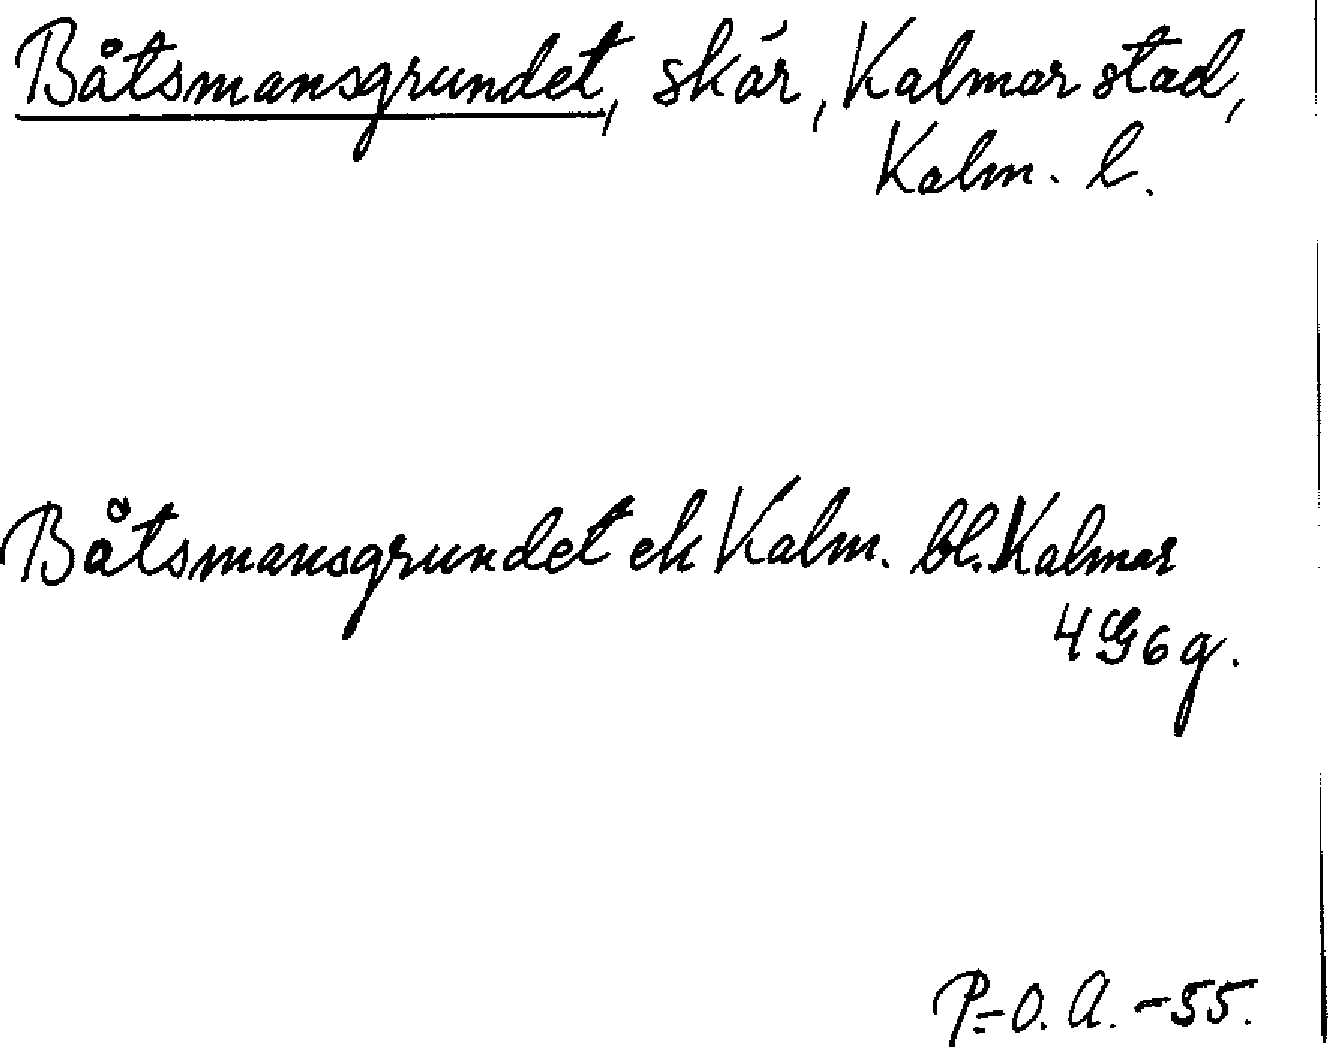 Båtsmansgrundet, skär, Kalmar stad,
Kalm. l.
Båtsmansgrundet ek Kalm. bl. Kalmar
4 G 6 g.
P-O. A. -55.